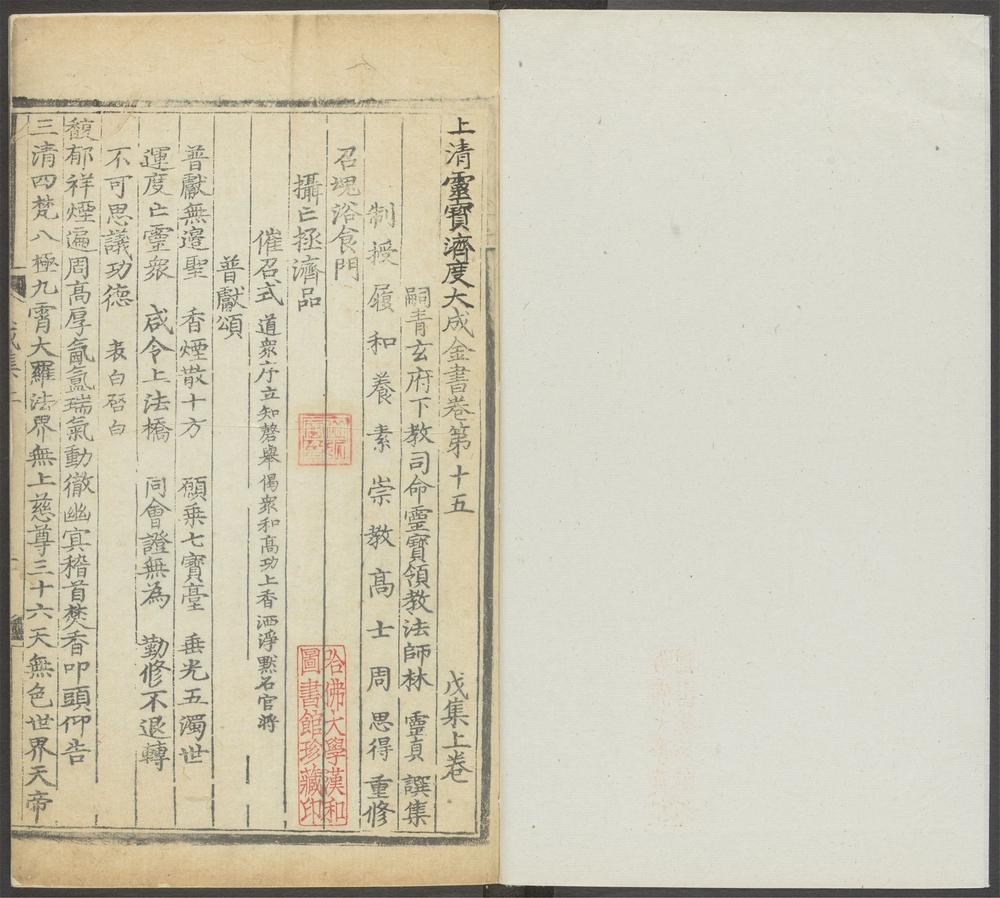 上清靈寶濟度大成金書卷第十五 戊集上卷
嗣青玄府下教司命靈寶領教法師林 靈貞 譔集
制授履和養素崇教高士周思得重修
召魂浴食門
攝亡拯濟品
催召式 道衆序立知磬舉偈衆和高功上香洒淨默召官將
普獻頌
普獻無邊聖 香煙散十方 願乗七寳臺 垂光五濁世
運度亡靈衆 咸令上法橋 同會證無為 勤修不退轉
不可思議功德 表白啓白
馥郁祥煙遍周髙厚氤氲瑞氣動徹幽寘稽首焚香叩頭仰告
三清四梵八極九霄大羅法界無上慈尊三十六天無色世界天帝
哈佛大學漢和
圖書館珍藏印